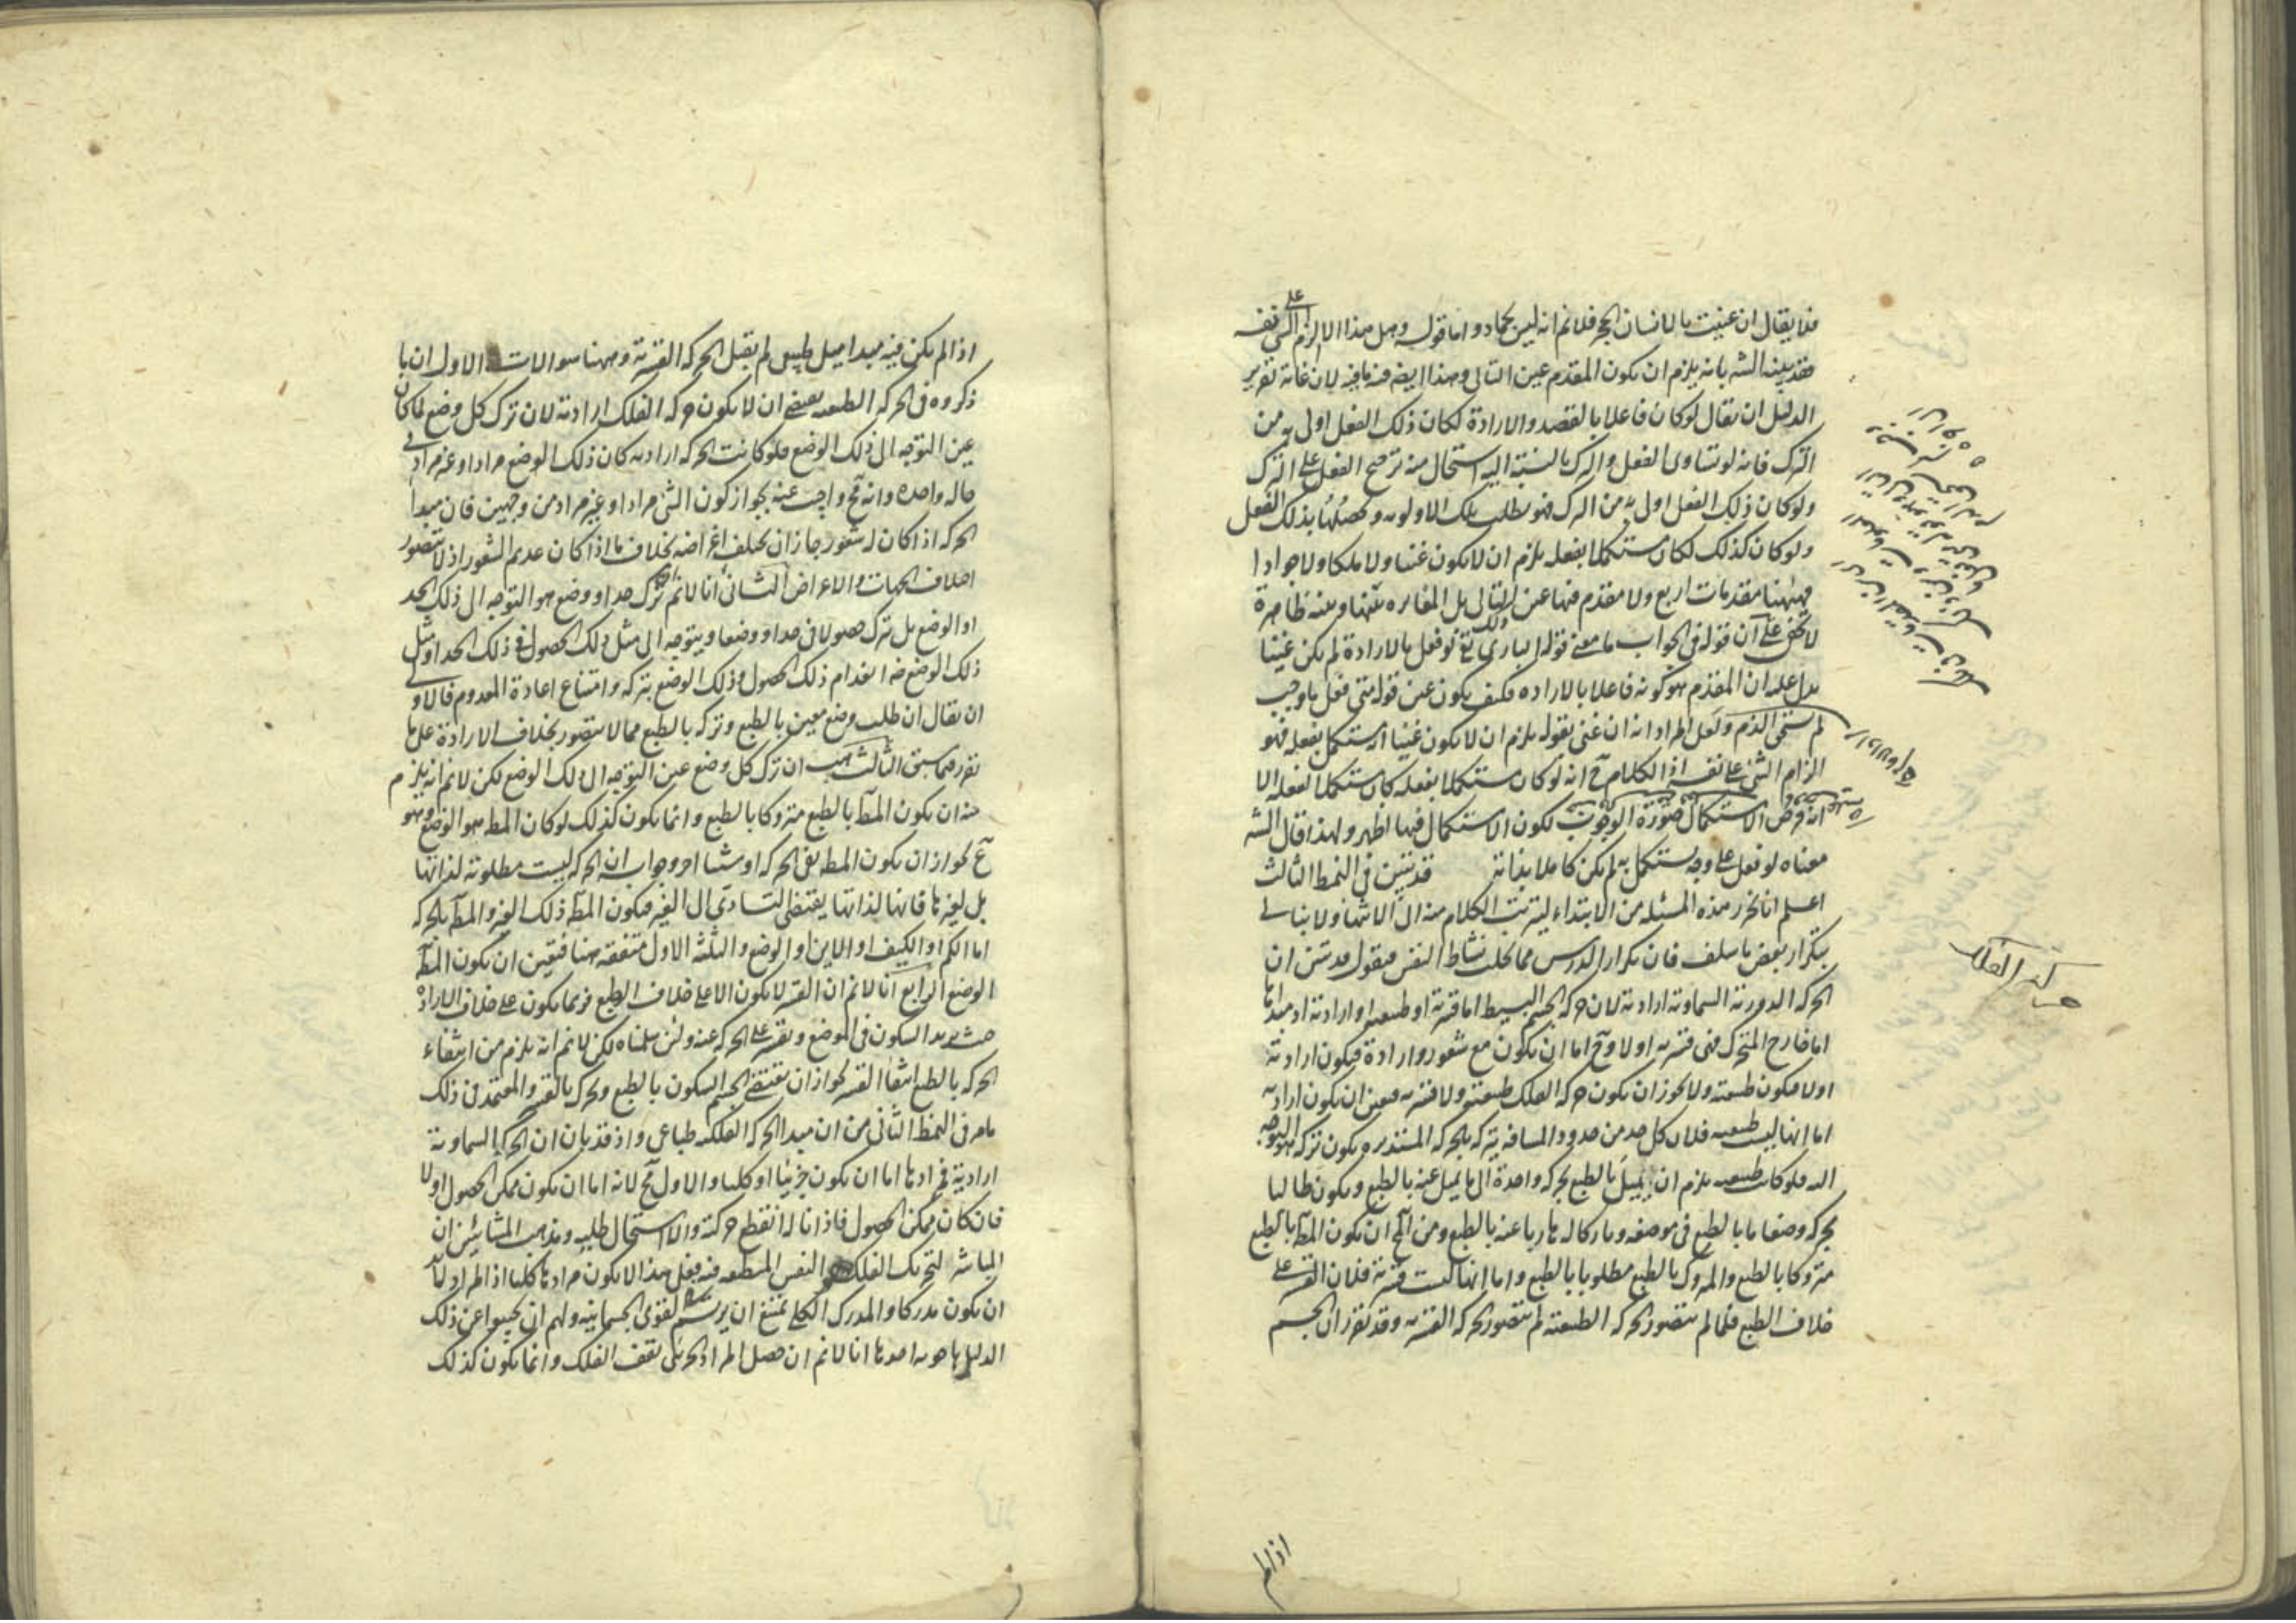 فلا يقال ان عنيت بالانسان الحجر فلا نم انه ليس بجماد واما قوله وهل هذا الا الزام الشئ على نفسه
فقد بينه الش بانه يلزم ان يكون المقدم عين التالى وهذا ايضا فيه ما فيه لان غاية تقرير
الدليل ان يقال لو كان فاعلا بالقصد والارادة لكان ذلك الفعل اولى به من
الترك فانه لو تساوى الفعل والترك بالنسبة اليه استحال منه ترجيح الفعل على الترك
ولو كان ذلك الفعل اولى به من الترك فهو يطلب تلك الاولوية وتحصيلها بذلك الفعل
ولو كان كذلك لكان مستكملا بفعله يلزم ان لا يكون غنيا ولا ملكا ولا جوادا
فههنا مقدمات اربع ولا مقدم فيها عين التالى بل المغايرة بينها وبينه ظاهرة
لا يخفى عليك ان قوله فى الجواب ما معنى قوله البارى تع لو فعل بالارادة لم يكن غنيا
يدل على ان المقدم هو كونه فاعلا بالارادة فكيف يكون عين قوله متى فعل ما وجب
لم يستحق الذم ولعل المراد انه ان عنى بقوله يلزم ان لا يكون غنيا انه مستكمل بفعله فهو
الزام الشئ على نفسه اذ الكلام ح انه لو كان مستكملا بفعله كان مستكملا بفعله الا
انه فرض الاستكمال صورة الوجوب لكون الاستكمال فيها اظهر ولهذا قال الش
معناه لو فعل على وجه يستكمل به لم يكن كاملا بذاته قد تبين فى النمط الثالث
اعلم انا نحرر هذه المسئلة من الابتداء ليترتب الكلام منه الى الانتهاء ولا نبالى
بتكرار بعض ما سلف فان تكرار الدرس مما يجلب نشاط النفس فنقول قد تبين ان
الحركة الدورية السماوية ارادية لان حركة الجسم البسيط اما قسرية او طبيعية او ارادية اذ مبدأها
اما خارج المتحرك فهى قسرية او لا وح اما ان يكون مع شعور وارادة فيكون ارادية
او لا فيكون طبيعية ولا يجوز ان يكون حركة الفلك طبيعية ولا قسرية فتعين ان يكون ارادية
اما انها ليست طبيعية فلان كل حد من حدود المسافة يتركه بالحركة المستديرة يكون تركه هو التوجه
اليه فلو كانت طبيعية يلزم ان يميل بالطبع بحركة واحدة الى ما يميل عنه بالطبع ويكون طالبا
بحركة وضعا ما بالطبع فى موضعه وتاركا له هاربا عنه بالطبع ومن المح ان يكون المط بالطبع
متروكا بالطبع والمتروك بالطبع مطلوبا بالطبع واما انها ليست قسرية فلان القسر على
خلاف الطبع فلما لم يتصور الحركة الطبيعية لم يتصور الحركة القسرية وقد تقرر ان الجسم
كذا الفلك
اذا لم
اذا لم يكن فيه مبدا ميل طبيعى لم يقبل الحركة القسرية وههنا سوالات الاول ان ما
ذكروه فى الحركة الطبيعية يقتضى ان لا يكون حركة الفلك ارادية لان ترك كل وضع لما كان
عين التوجه الى ذلك الوضع فلو كانت الحركة ارادية كان ذلك الوضع مرادا وغير مراد فى
حالة واحدة وانه مح واجيب عنه بجواز كون الشئ مرادا وغير مراد من وجهين فان مبدأ
الحركة اذا كان له شعور جاز ان يختلف اغراضه بخلاف ما اذا كان عديم الشعور اذ لا يتصور
اختلاف الجهات والاغراض الثانى انا لا نم ان ترك حد او وضع هو التوجه الى ذلك الحد
او الوضع بل ترك حصولا فى حد او وضعا ويتوجه الى مثل ذلك الحصول فى ذلك الحد او مثل
ذلك الوضع ضرورة انعدام ذلك الحصول وذلك الوضع بتركه وامتناع اعادة المعدوم فالاولى
ان يقال ان طلب وضع معين بالطبع وتركه بالطبع مما لا يتصور بخلاف الارادة على ما
تقرر فيما سبق الثالث هب ان ترك كل وضع عين التوجه الى ذلك الوضع لكن لا نم انه يلزم
منه ان يكون المط بالطبع متروكا بالطبع وانما يكون كذلك لو كان المط هو الوضع وهو
مح لجواز ان يكون المط نفس الحركة او شيئا اخر وجوابه ان الحركة ليست مطلوبة لذاتها
بل لغيرها فانها لذاتها يقتضى التادى الى الغير فيكون المط ذلك الغير والمط بالحركة
اما الكم او الكيف او الاين او الوضع والثلثة الاول منتفية هنا فتعين ان يكون المط
الوضع الرابع انا لا نم ان القسر لا يكون الا على خلاف الطبع فربما يكون على خلاف الارادة
حيث يريد السكون فى الموضع ويقسر على الحركة عنه ولئن سلمناه لكن لا نم انه يلزم من انتفاء
الحركة بالطبع انتفاء القسر لجواز ان يقتضى الجسم السكون بالطبع ويحرك بالقسر والمعتمد فى ذلك
ما مر فى النمط الثانى من ان مبدا الحركة الفلكية طباعى واذ قد بان ان الحركة السماوية
ارادية فمرادها اما ان يكون جزئيا او كليا والاول مح لانه اما ان يكون ممكن الحصول او لا
فان كان ممكن الحصول فاذا ناله انقطع حركته والا استحال طلبه ومذهب المشائين ان
المباشر لتحريك الفلك هو النفس المنطبعة فيه فعلى هذا لا يكون مرادها كليا اذ المراد لابد
ان يكون مدركا والمدرك الكلى يمتنع ان يرتسم فى القوى الجسمانية ولهم ان يجيبوا عن ذلك
الدليل باجوبة احدها انا لا نم ان حصل المراد الجزئى تقف الفلك وانما يكون كذلك